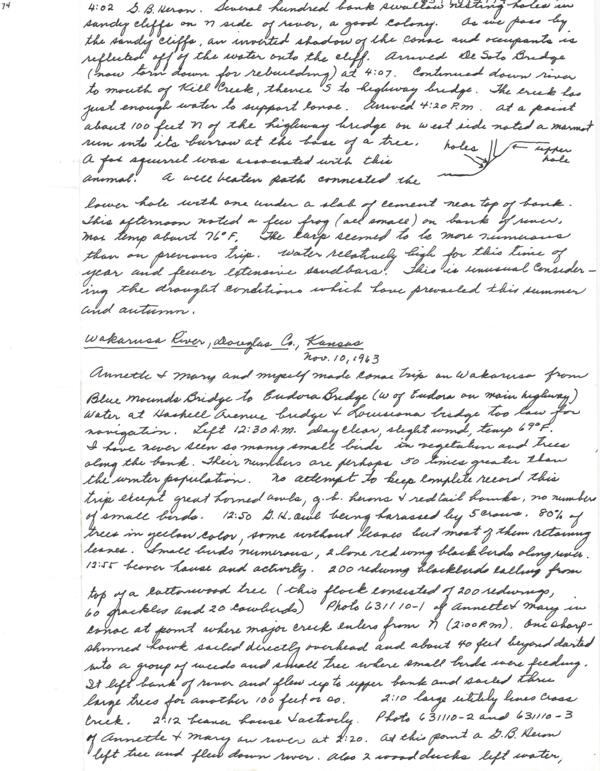 74
4:02 G.B. Heron. Several hundred bank swallow nesting holes in
sandy cliffs on N side of river, a good colony. As we pass by
the sandy cliffs, an inverted shadow of the canoe and occupants is
reflected off of the water onto the cliff. Arrived De Soto Bridge
(now torn down for rebuilding) at 4:07. Continued down river
to mouth of Kill Creek, thence S to highway bridge. The creek has
just enough water to support canoe. Arrived 4:20 P.M. At a point
about 100 feet N of the highway bridge on west side noted a marmot
run into its burrow at the base of a tree.
holes
upper hole
A fox squirrel was associated with this
animal. A well beaten path connected the
lower hole with one under a slab of cement near top of bank.
This afternoon noted a few frog (all small) on bank of river,
max temp about 76°F. The carp seemed to be more numerous
than on previous trip. Water relatively high for this time of
year and fewer extensive sandbars. This is unusual consider-
ing the drought conditions which have prevailed this summer
and autumn.
Wakarusa River, Douglas Co., Kansas
Nov. 10, 1963
Annette & Mary and myself made canoe trip on Wakarusa from
Blue Mounds Bridge to Eudora Bridge (W of Eudora on main highway)
Water at Haskell Avenue bridge & Louisiana bridge too low for
navigation. Left 12:30 A.M. Day clear, slight wind, temp 69°F.
I have never seen so many small birds in vegetation and trees
along the bank. Their numbers are perhaps 50 times greater than
the winter population. No attempt to keep complete record this
trip except great horned owls, g.b. herons & redtail hawks, no numbers
of small birds. 12:50 G.H. Owl being harassed by 5 crows. 80% of
trees in yellow color, some without leaves but most of them retaining
leaves. Small birds numerous, 2 lone red wing blackbirds along river.
12:55 beaver house and activity. 200 redwing blackbirds calling from
top of a cottonwood tree (this flock consisted of 200 redwings,
60 grackles and 20 cowbirds) Photo 631110-1 of Annette & Mary in
canoe at point where major creek enters from N (2:00 P.M.). One sharp-
shinned hawk sailed directly overhead and about 40 feet beyond darted
into a group of weeds and small tree where small birds were feeding.
It left bank of river and flew up to upper bank and sailed thru
large trees for another 100 feet or so. 2:10 large utility lines cross
creek. 2:12 beaver house & activity. Photo 631110-2 and 631110-3
of Annette & Mary on river at 2:20. At this point a G.B. Heron
left tree and flew down river. Also 2 wood ducks left water,